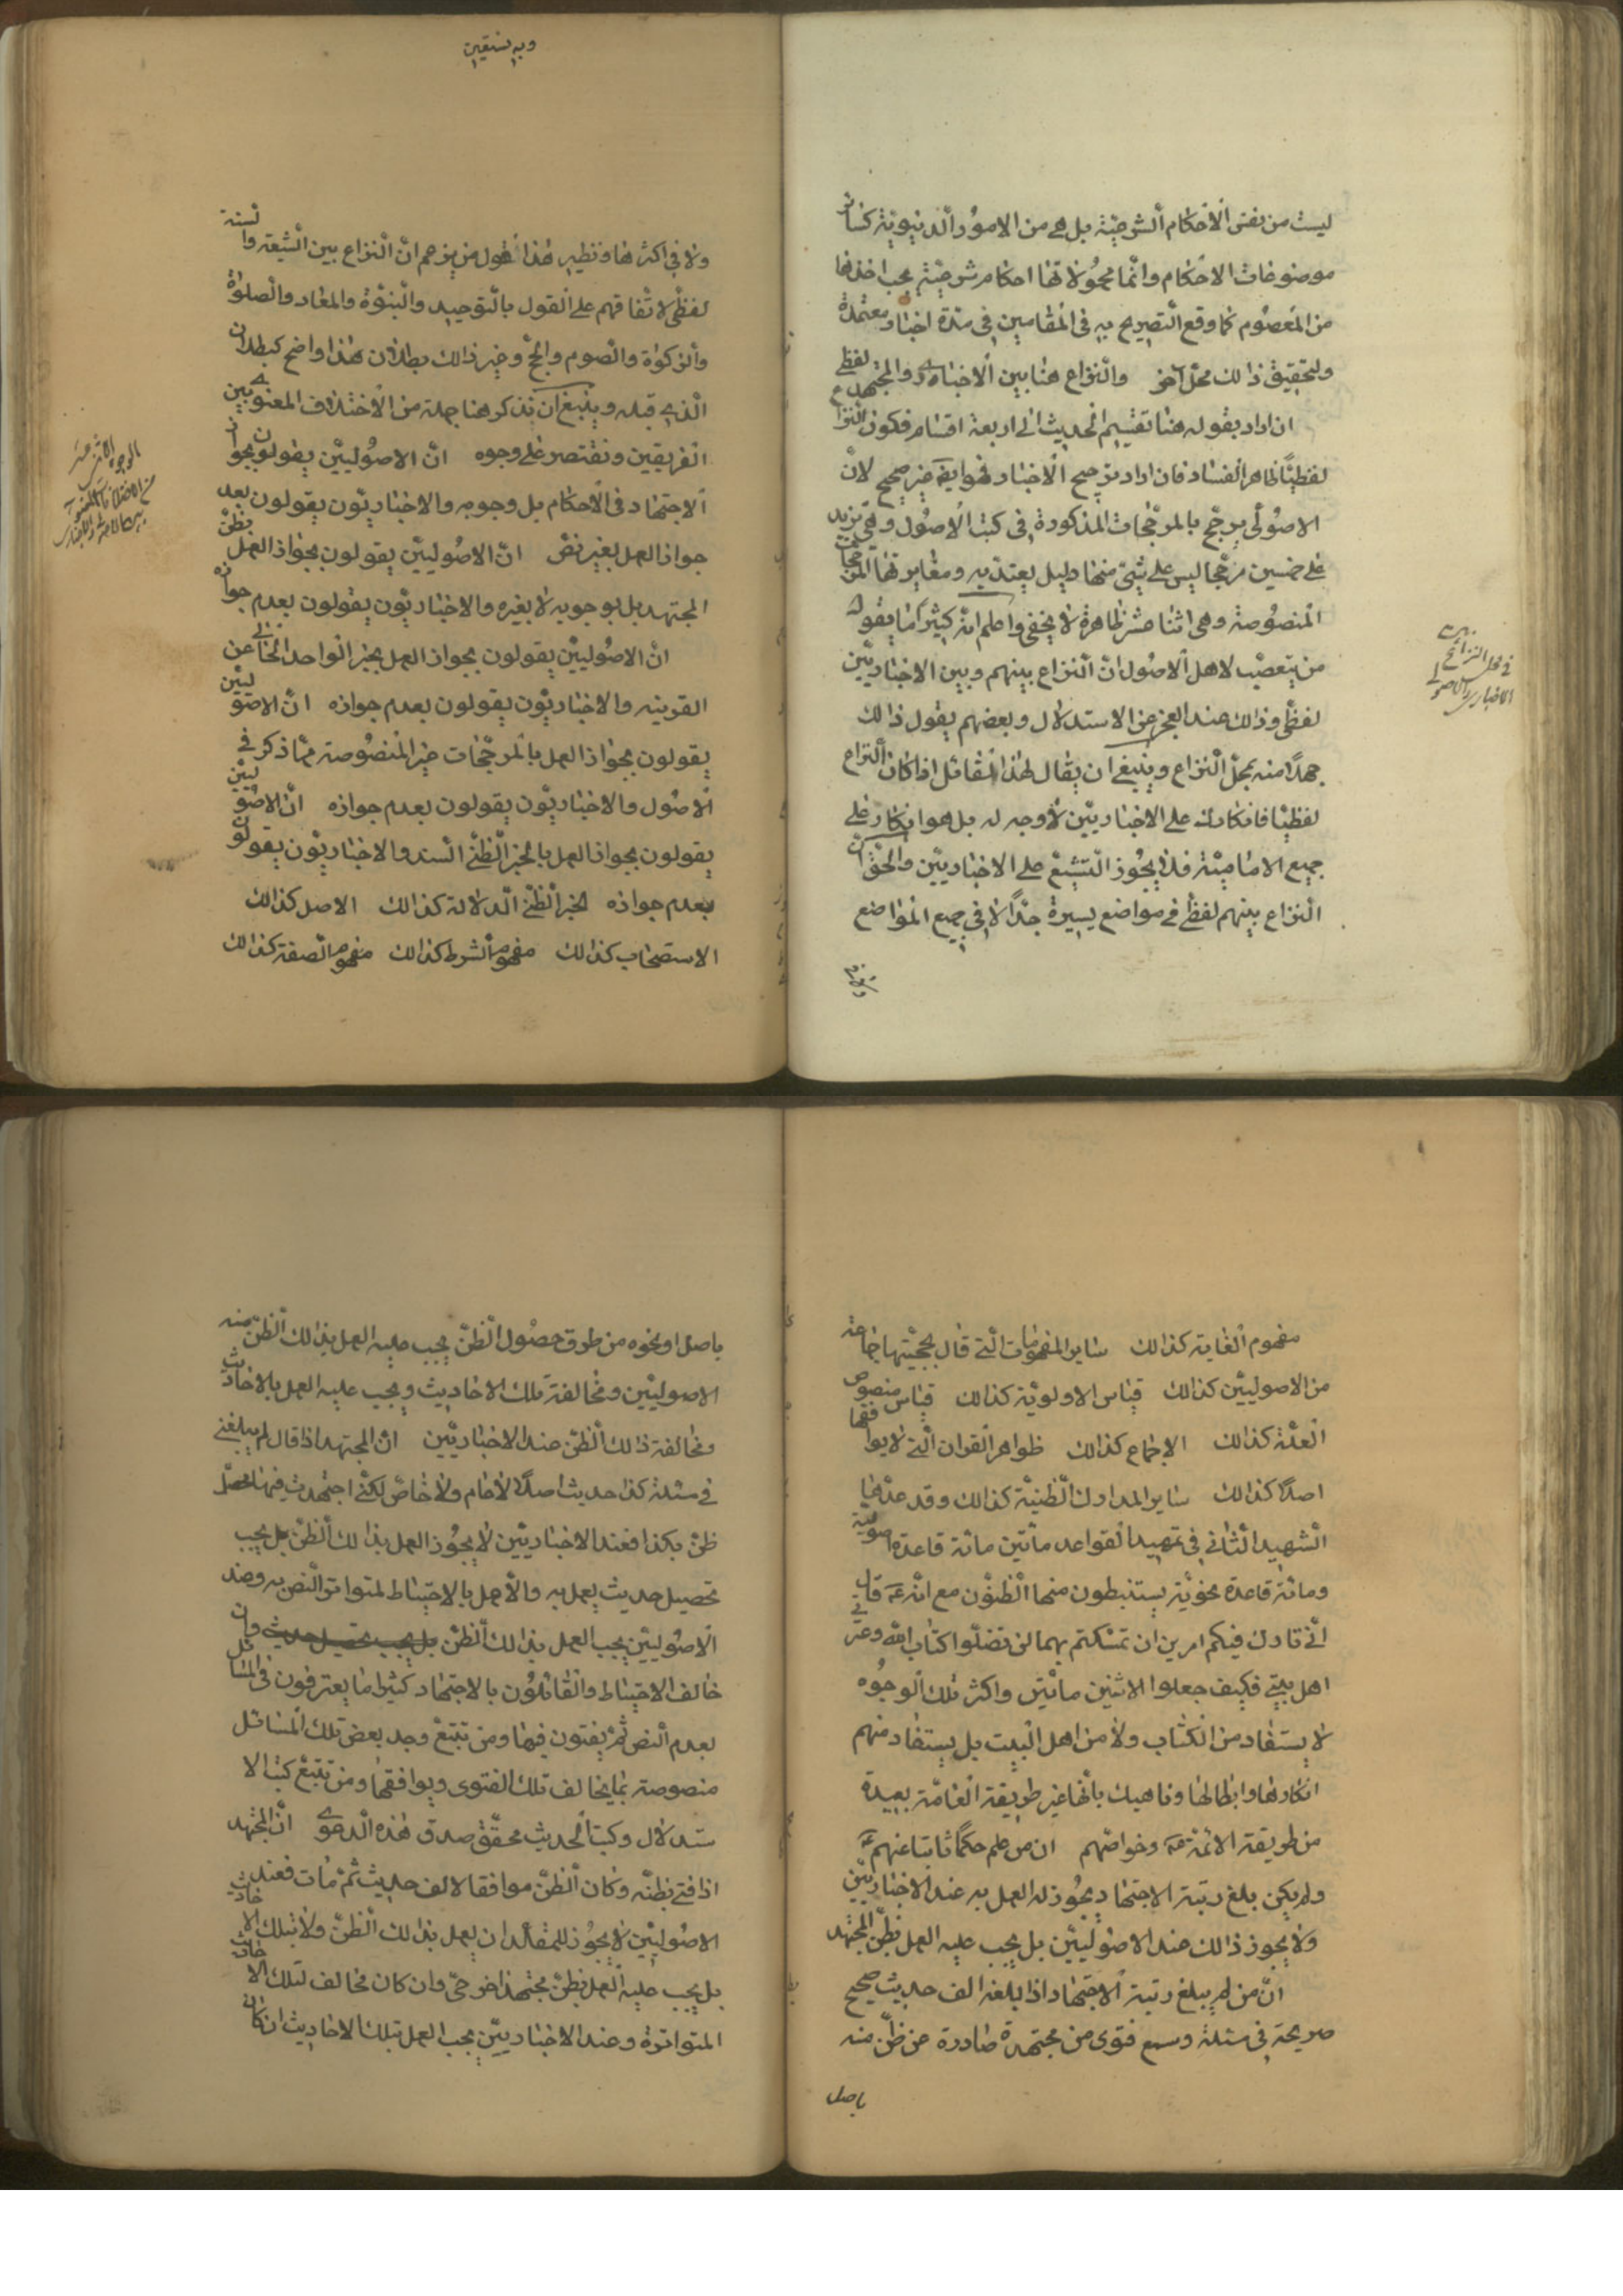 ليست من نفس الاحكام الشرعيّة بل هي من الامور الدنيويّة كساير
موضوعات الاحكام وانّما محمولاتها احكام شرعيّة يجب اخذها
من المعصوم كما وقع التصريح به في المقامين في عدّة اخبار معتمدة
ولتحقيق ذلك محلّ اخر والنزاع هنا بين الاخباري والمجتهد لفظي
ان اراد بقوله هنا تقسيم الحديث الى اربعة اقسام فكون النزاع
لفظيّاً ظاهر الفساد فان اراد ترجيح الاخبار فهو ايضا غير صحيح لانّ
الاصولي يرجّح بالمرجّحات المذكورة في كتب الاصول وهي تزيد
على خمسين مرجّحا ليس على شئ منها دليل يعتدّ به ومغايرتها المرجّحات
المنصوصة وهي اثنا عشر ظاهرة لا يخفى واعلم انّه كثيراً ما يقول
من يتعصّب لاهل الاصول انّ النزاع بينهم وبين الاخباريّين
لفظي وذلك عند العجز عن الاستدلال وبعضهم يقول ذلك
جهلاً منه بمحلّ النزاع وينبغي ان يقال لهذا القائل اذا كان النزاع
لفظيّا فانكارك على الاخباريين لا وجه له بل هو انكار على
جميع الاماميّة فلا يجوز التشنيع على الاخباريين والحقّ انّ
النزاع بينهم لفظي في مواضع يسيرة جدّاً لا في جميع المواضع
في محل النزاع بين
الاخباري والاصولي
وبه نستعين
ولا في اكثرها ونظير هذا القول من يزعم انّ النزاع بين الشيعة والسنة
لفظي لاتّفاقهم على القول بالتوحيد والنبوّة والمعاد والصلوة
والزكوة والصوم والحجّ وغير ذلك وبطلان هذا واضح كبطلان
الذي قبله وينبغي ان نذكر هنا جملة من الاختلاف المعنوي بين
الفريقين ونقتصر على وجوه انّ الاصوليّين يقولون بجواز
الاجتهاد في الاحكام بل وجوبه والاخباريّون يقولون بعدم
جواز العمل بغير نصّ انّ الاصوليّين يقولون بجواز العمل بظنّ
المجتهد بل بوجوبه لا بغيره والاخباريّون يقولون بعدم جوازه
انّ الاصوليّين يقولون بجواز العمل بخبر الواحد الخالي عن
القرينه والاخباريّون يقولون بعدم جوازه انّ الاصوليّين
يقولون بجواز العمل بالمرجّحات غير المنصوصة ممّا ذكر في
الاصول والاخباريّون يقولون بعدم جوازه انّ الاصوليّين
يقولون بجواز العمل بالخبر الظنّي السند والاخباريّون يقولون
بعدم جوازه الخبر الظنّي الدلالة كذلك الاصل كذلك
الاستصحاب كذلك مفهوم الشرط كذلك مفهوم الصفة كذلك
مفهوم الغاية كذلك ساير المفهومات الّتي قال بحجّيتها جماعة
من الاصوليّين كذلك قياس الاولويّة كذلك قياس منصوص
العلّة كذلك الاجماع كذلك ظواهر القران الّتي لا يوافقها
اصلاً كذلك ساير المدارك الظنّية كذلك وقد عدّها
الشهيد الثاني في تمهيد القواعد مأتين مائة قاعدة اصولية
ومائة قاعدة نحويّة يستنبطون منها الظنون مع انّه ع قال
انّي تارك فيكم امرين ان تمسّكتم بهما لن تضلّوا كتاب الله وعترتي
اهل بيتي فكيف جعلوا الاثنين مأتين واكثر تلك الوجوه
لا يستفاد من الكتاب ولا من اهل البيت بل يستفاد منهم
انكارها وابطالها وناهيك بانّها غير طريقة العامّة بعيدة
من طريقة الائمة ع وخواصّهم ان من علم حكماً ثابتا عنهم ع
ولم يكن بلغ رتبة الاجتهاد يجوز له العمل به عند الاخباريّين
ولا يجوز ذلك عند الاصوليّين بل يجب عليه العمل بظنّ المجتهد
انّ من لم يبلغ رتبة الاجتهاد اذا بلغه الف حديث صحيح
صريحة في مسئلة وسمع فتوى من مجتهد صادرة عن ظنّ منه
باصل
باصل او نحوه من طرق حصول الظنّ يجب عليه العمل بذلك الظنّ عند
الاصوليّين ومخالفة تلك الاحاديث ويجب عليه العمل بالاحاديث
ومخالفة ذلك الظنّ عند الاخباريّين انّ المجتهد اذا قال لم يبلغني
في مسئلة كذا حديث اصلاً لا عام ولا خاصّ لكنّي اجتهدت فيها فحصل
ظنّ بكذا فعند الاخباريّين لا يجوز العمل بذلك الظنّ بل يجب
تحصيل حديث يعمل به والّا عمل بالاحتياط لتواتر النص به وعند
الاصوليّين يجب العمل بذلك الظنّ بل يجب تحصيل حديث وان
خالف الاحتياط والقائلون بالاجتهاد كثيرا ما يعترفون في المسائل
بعدم النص ثمّ يفتون فيها ومن تتبّع وجد بعض تلك المسائل
منصوصة بما يخالف تلك الفتوى ويوافقها ومن تتبّع كتب الا
ستدلال وكتب الحديث تحقّق صدق هذه الدعوى انّ المجتهد
اذا فتى بظنّه وكان الظنّ موافقا لالف حديث ثمّ مات فعند
الاصوليّين لا يجوز للمقلّد ان يعمل بذلك الظنّ ولا بتلك الاحاديث
بل يجب عليه العمل بظنّ مجتهد اخر حيّ وان كان مخالف لتلك الاحاديث
المتواترة وعند الاخباريّين يجب العمل بتلك الاحاديث ان كان